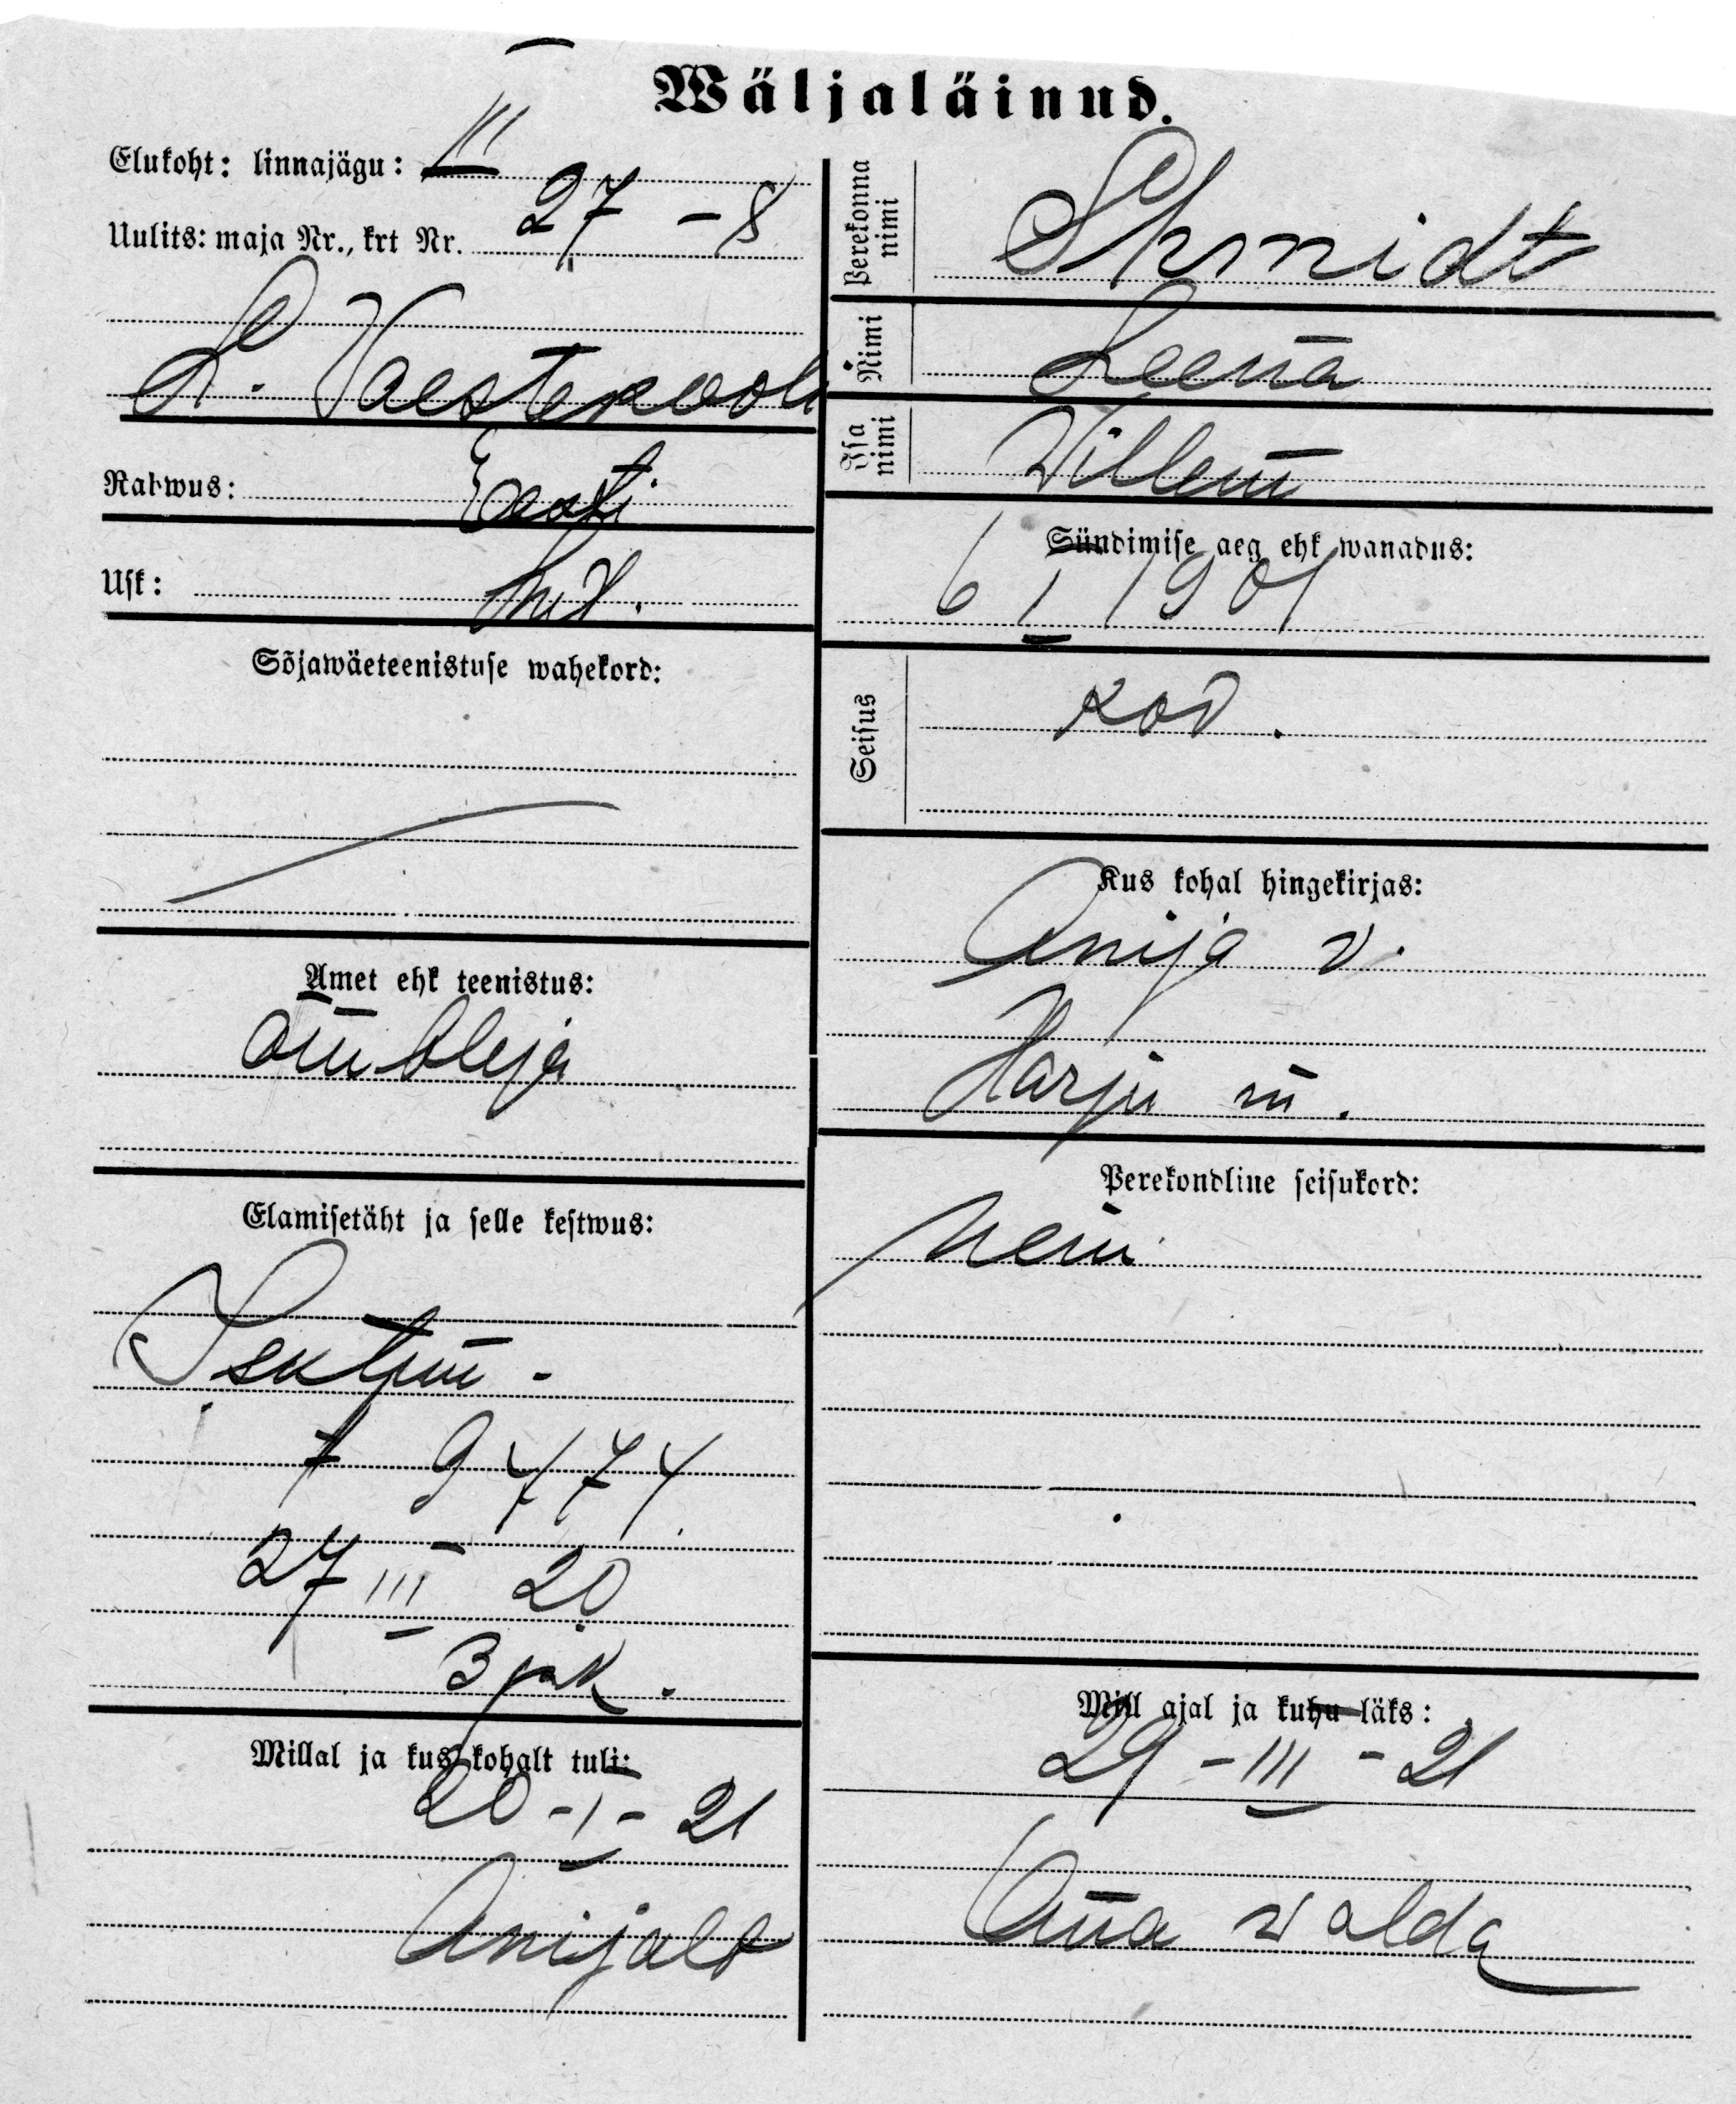 Wäljaläinud.
Elukoht: linnajägu: III
Uulits: maja Nr., krt Nr. 27 - 8
Rahwus: Eesti
Usk: lut.
Sõjawäeteenistuse wahekord:
Amet ehk teenistus:
õmbleja
Elamisetäht ja selle kestwus:
9474
27 III 20
Millal ja kus kohalt tuli:
20 - I - 21
Anijalt
Perekonna nimi
Shmidt
Nimi
Leena
Isa nimi
Willem
Sündimise aeg ehk wanadus:
6 I 1901
Seisus
kod.
Kus kohal hingekirjas:
Anija v.
Harju m.
Perekondline seisukord:
Mill ajal ja kuhu läks:
29 - III - 21
Oma walda